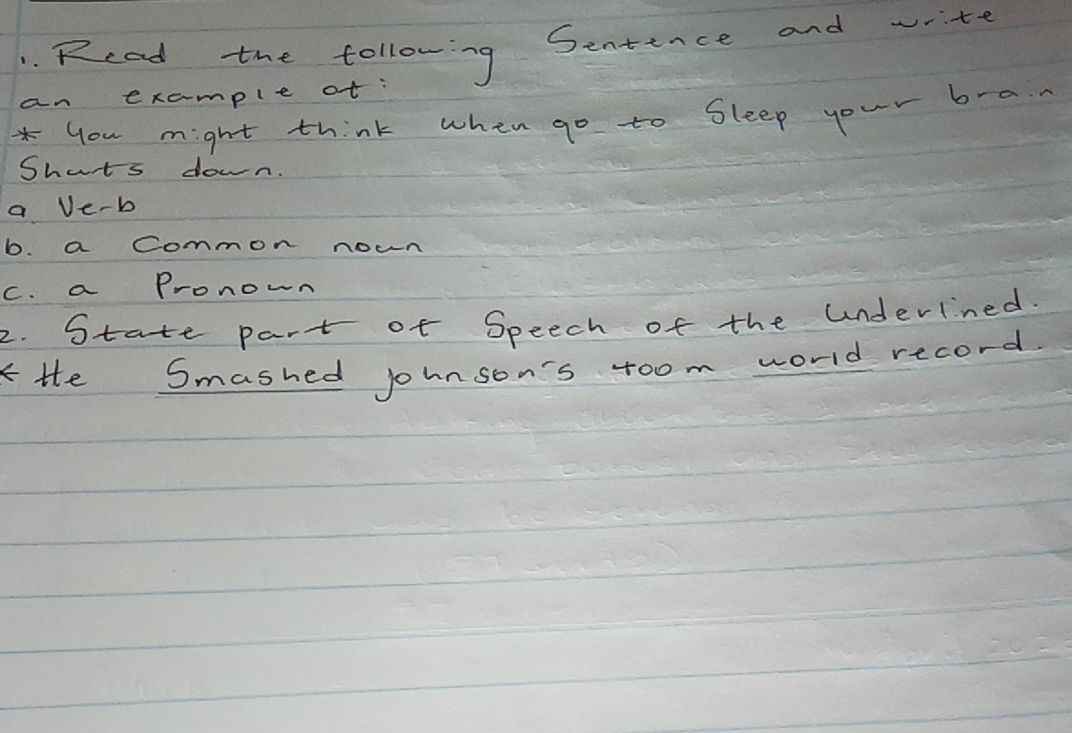 1. Read the following Sentence and write
an example of:
* You might think when go to Sleep your brain
Shuts down.
a Verb
b. a Common noun
c. a Pronoun
2. State part of Speech of the underlined.
* He Smashed johnson's 400m world record.